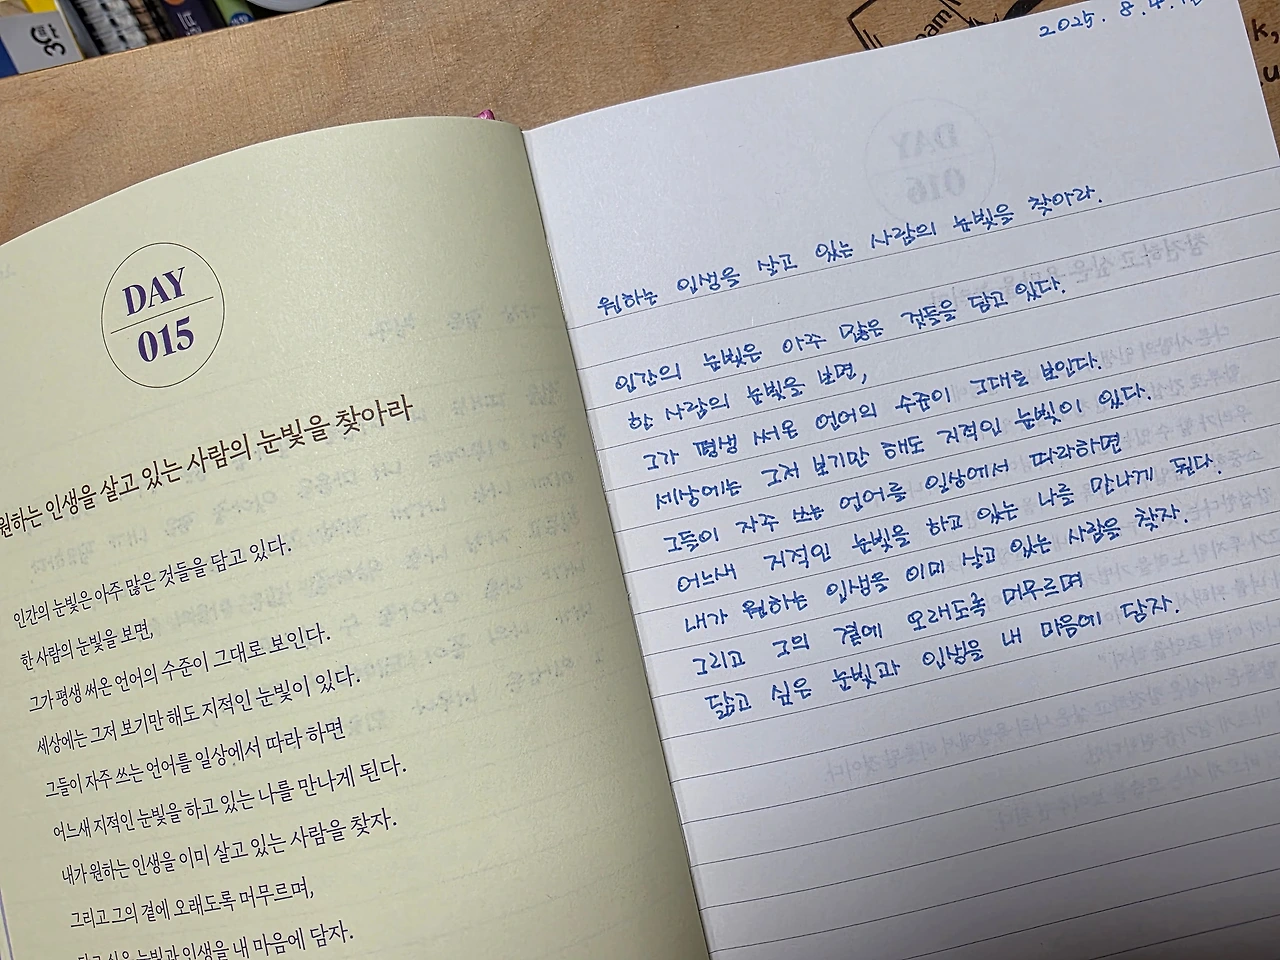 DAY
015
원하는 인생을 살고 있는 사람의 눈빛을 찾아라
인간의 눈빛은 아주 많은 것들을 담고 있다.
한 사람의 눈빛을 보면,
그가 평생 써온 언어의 수준이 그대로 보인다.
세상에는 그저 보기만 해도 지적인 눈빛이 있다.
그들이 자주 쓰는 언어를 일상에서 따라 하면
어느새 지적인 눈빛을 하고 있는 나를 만나게 된다.
내가 원하는 인생을 이미 살고 있는 사람을 찾자.
그리고 그의 곁에 오래도록 머무르며,
닮고 싶은 눈빛과 인생을 내 마음에 담자.
2025. 8. 4.
원하는 인생을 살고 있는 사람의 눈빛을 찾아라.
인간의 눈빛은 아주 많은 것들을 담고 있다.
한 사람의 눈빛을 보면,
그가 평생 써온 언어의 수준이 그대로 보인다.
세상에는 그저 보기만 해도 지적인 눈빛이 있다.
그들이 자주 쓰는 언어를 일상에서 따라하면
어느새 지적인 눈빛을 하고 있는 나를 만나게 된다.
내가 원하는 인생을 이미 살고 있는 사람을 찾자.
그리고 그의 곁에 오래도록 머무르며
닮고 싶은 눈빛과 인생을 내 마음에 담자.